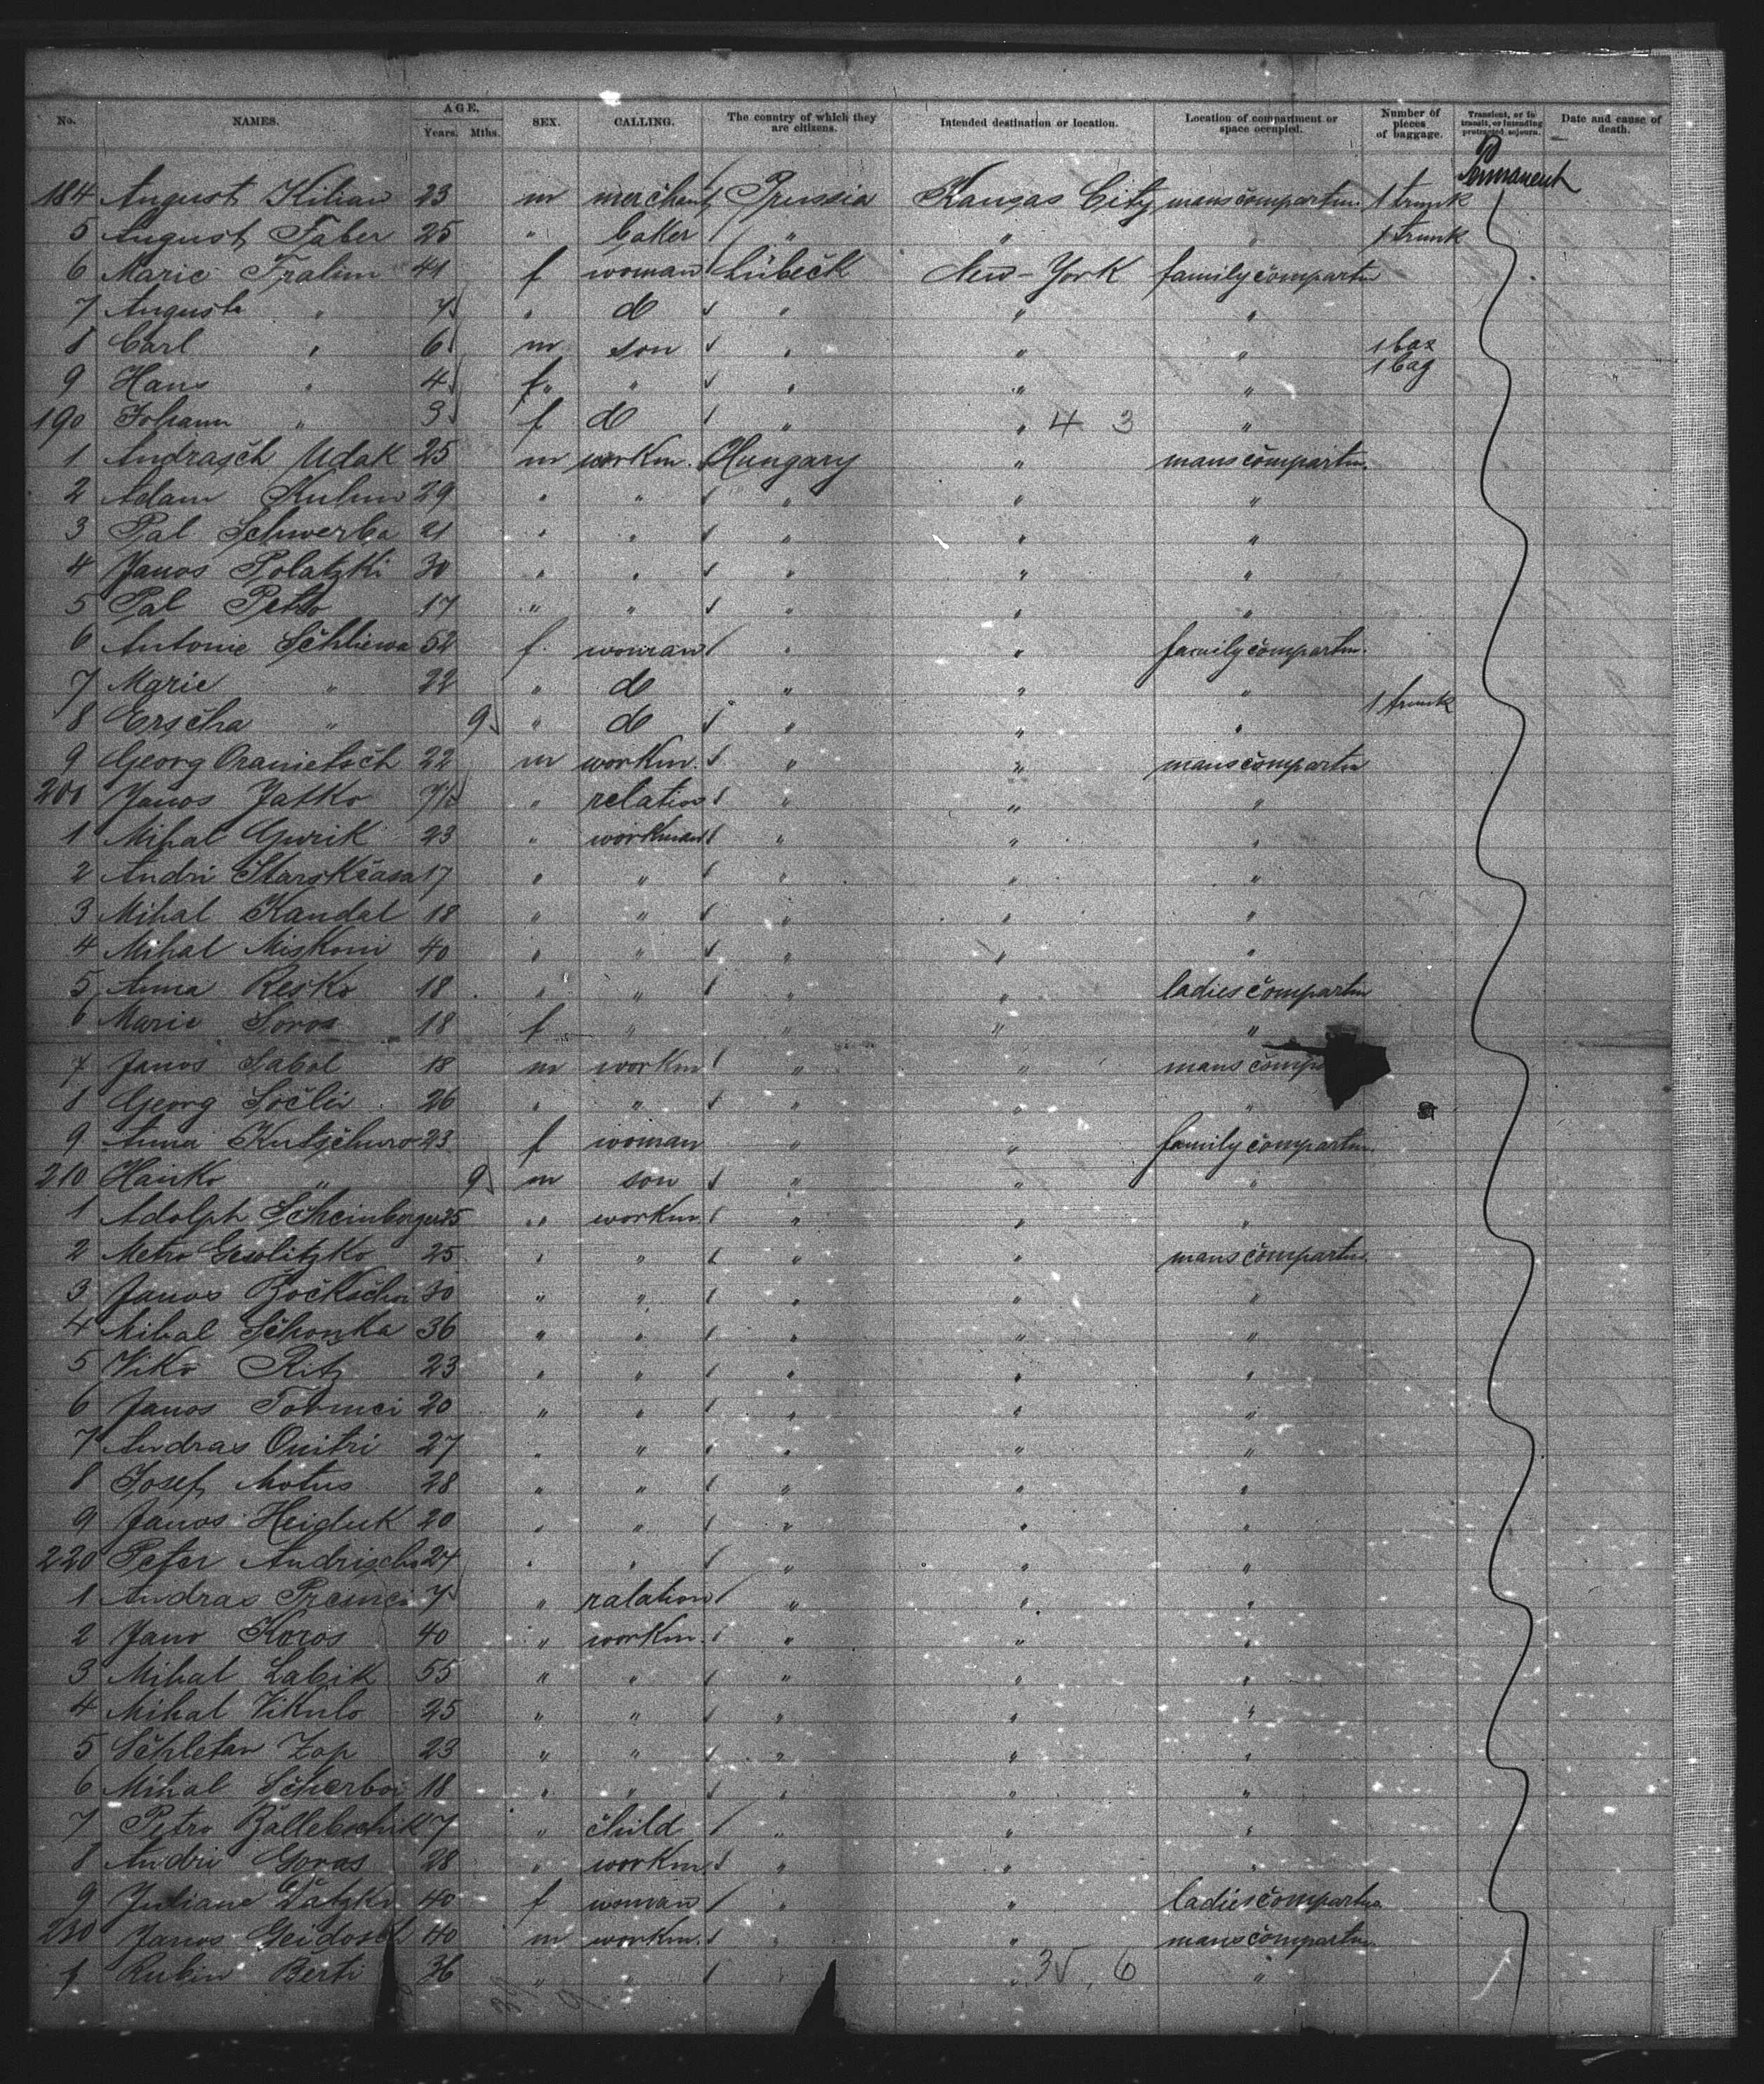 No. NAMES. AGE. Years. Mths. SEX. CALLING. The country of which they are citizens. Intended destination or location. Location of compartment or space occupied. Number of pieces of baggage. Transient, or in transit, or intending protracted sojourn. Date and cause of death.
Permanent
184 August Kilian 23 m merchant Prussia Kansas City mans compartm. 1 trunk
5 August Faber 25 " baker " " " 1 trunk
6 Marie Tralim 41 f woman Lübeck New-York family compartm
7 Auguste " 7 " d " " "
8 Carl " 6 m son " " " 1 bag
9 Hans " 4 f " " " " " 1 bag
190 Johann " 3 f d " " 4 3 "
1 Andrasch Udak 25 m workm. Hungary " mans compartm.
2 Adam Kuhn 29 " " " " "
3 Pal Schwerba 21 " " " " "
4 Janos Polatzki 30 " " " " "
5 Pal Petto 17 " " " " "
6 Antonie Schliewa 52 f. woman " " family compartm.
7 Marie " 22 " d " " "
8 Erscha " 9 " d " " " 1 trunk
9 Georg Oranietsch 22 m workm. " " mans compartm
200 Janos Jatko " relation " " "
1 Mihal Gurik 23 " workman " " "
2 Andri 17 " " " " "
3 Mihal Kandal 18 " " " " "
4 Mihal Miskoni 40 " " " " "
5 Anna Resko 18 " " " " ladies compartm
6 Marie Soros 18 f " " " "
7 Janos Sabol 18 m workm " " mans comp
8 Georg 26 " " " " "
9 Anna Kutschuro 23 f woman " " family compartm.
210 Hanko " 9 m son " " "
1 Adolph Scheinberger 25 " workm " " "
2 Metro Gewlitzko 25 " " " " mans compartm.
3 Janos 30 " " " " "
4 Mihal Schonka 36 " " " " "
5 Viko Ritz 23 " " " " "
6 Janos 20 " " " " "
7 Andras Onitri 27 " " " " "
8 Josef Motus 28 " " " " "
9 Janos Heiduk 20 " " " " "
220 Peter Andrischo 24 " " " " "
1 Andras 7 " ralation " " "
2 Jano Koros 40 " workm. " " "
3 Mihal Labik 55 " " " " "
4 Mihal Vikulo 25 " " " " "
5 Schletan Zop 23 " " " " "
6 Mihal Scherboi 18 " " " " "
7 Petro 7 " child " " "
8 Andri Goras 28 " workm. " " "
9 Juliane Datzko 40 f woman " " ladies compartm
230 Janos Geidosch 40 m workm. " " mans compartm
1 Rubin Berti 36 " " " " 35, 6 "